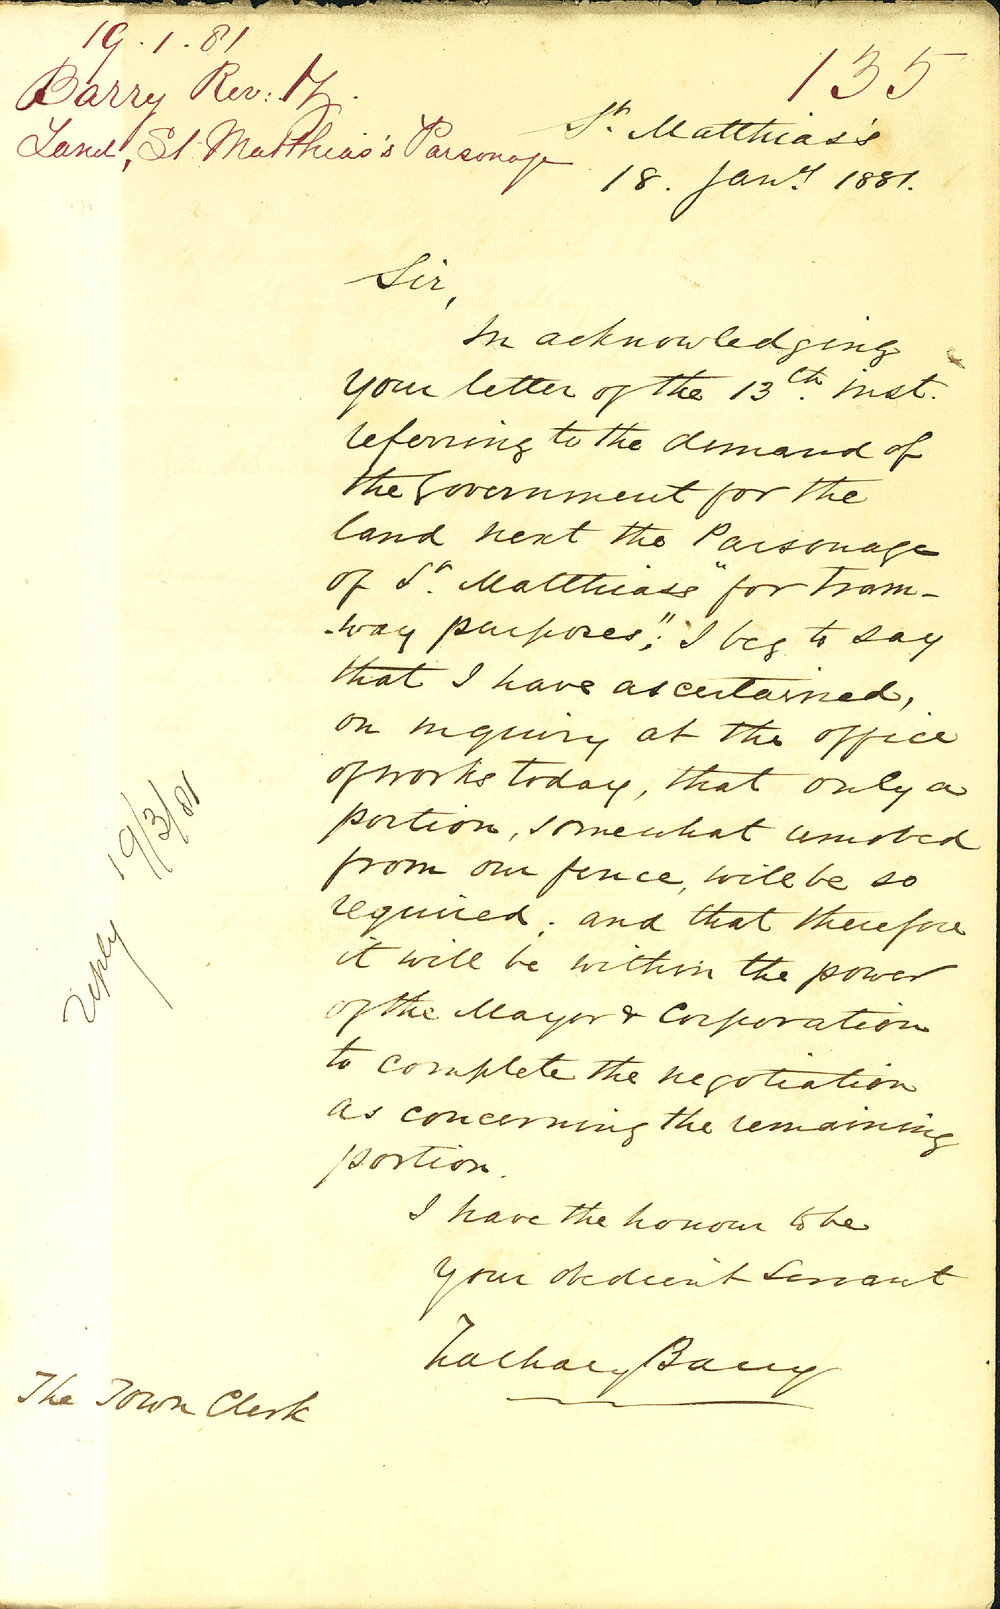 19.1.81
Barry Rev: Z.
Land, St Matthias's Parsonage
135
St. Matthias's
18. Jany. 1881.
Sir,
In acknowledging
your letter of the 13th. inst.
referring to the demand of
the Government for the
land next the Parsonage
of St. Matthias's "for Tram-
-way purposes"; I beg to say
that I have ascertained,
on inquiry at the office
of works today, that only a
portion, somewhat removed
from our fence, will be so
required; and that therefore
it will be within the power
of the Mayor & Corporation
to complete the negotiation
as concerning the remaining
portion.
I have the honour to be
your obedient Servant
Zachary Barry
The Town Clerk
reply 19/3/81